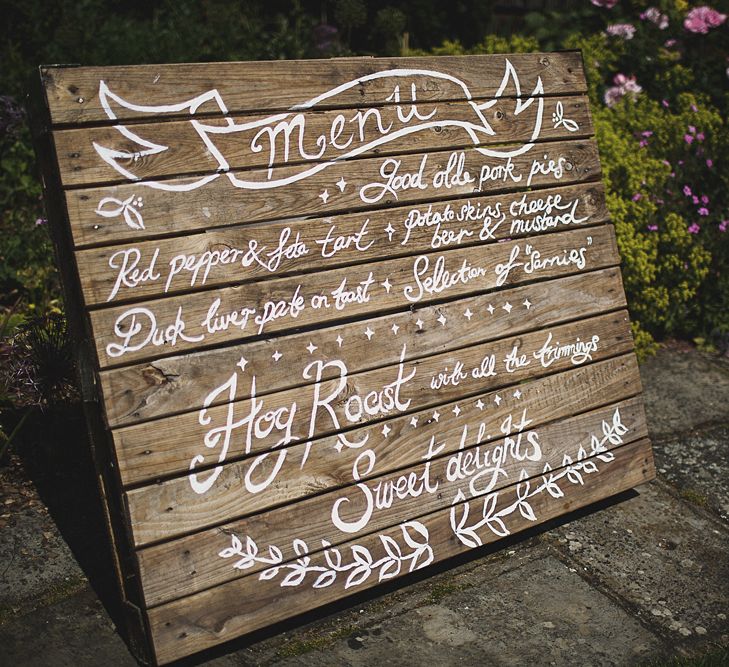 menu
Good olde pork pies
Red pepper & feta tart
Potato skins, cheese
beer & mustard
Duck liver pate on toast
Selection of "Sarnies"
Hog Roast with all the trimmings
Sweet delights